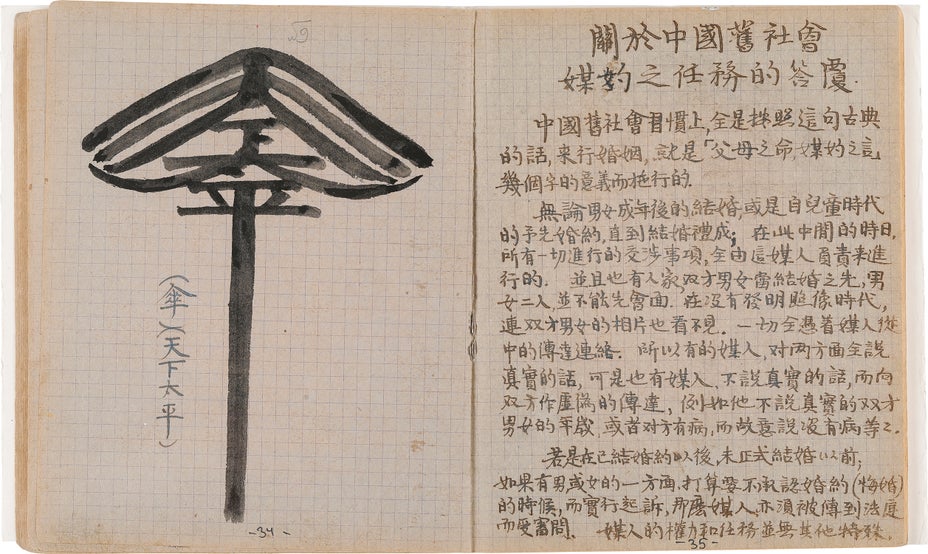 (傘)(天下太平)
-34-
關於中國舊社會
媒妁之任務的答覆.
中國舊社會習慣上,全是按照這句古典
的話,来行婚姻.就是「父母之命,媒妁之言」
幾個字的意義而施行的.
無論男女成年後的結婚,或是自兒童時代
的予先婚約,直到結婚禮成;在此中間的時日,
所有一切進行的交涉事項,全由這媒人負責来進
行的. 並且也有人家,双方男女當結婚之先,男
女二人,並不能先會面.在没有發明照像時代,
連双方男女的相片也看不見.一切全憑着媒人從
中的傳達連絡. 所以有的媒人,对两方面全說
真實的話,可是也有媒人,不說真實的話,而向
双方作虛偽的傳達,例如他不說真實的双方
男女的年歲,或者对方有病,而故意說没有病等之.
若是在已結婚約以後,未正式結婚以前;
如果有男或女的一方面,打算要不承認婚約(悔婚)
的時候,而實行起訴,那麼媒人,亦須被傳到法庭
而受審問. 媒人的權力和任務並無其他特殊.
-35-